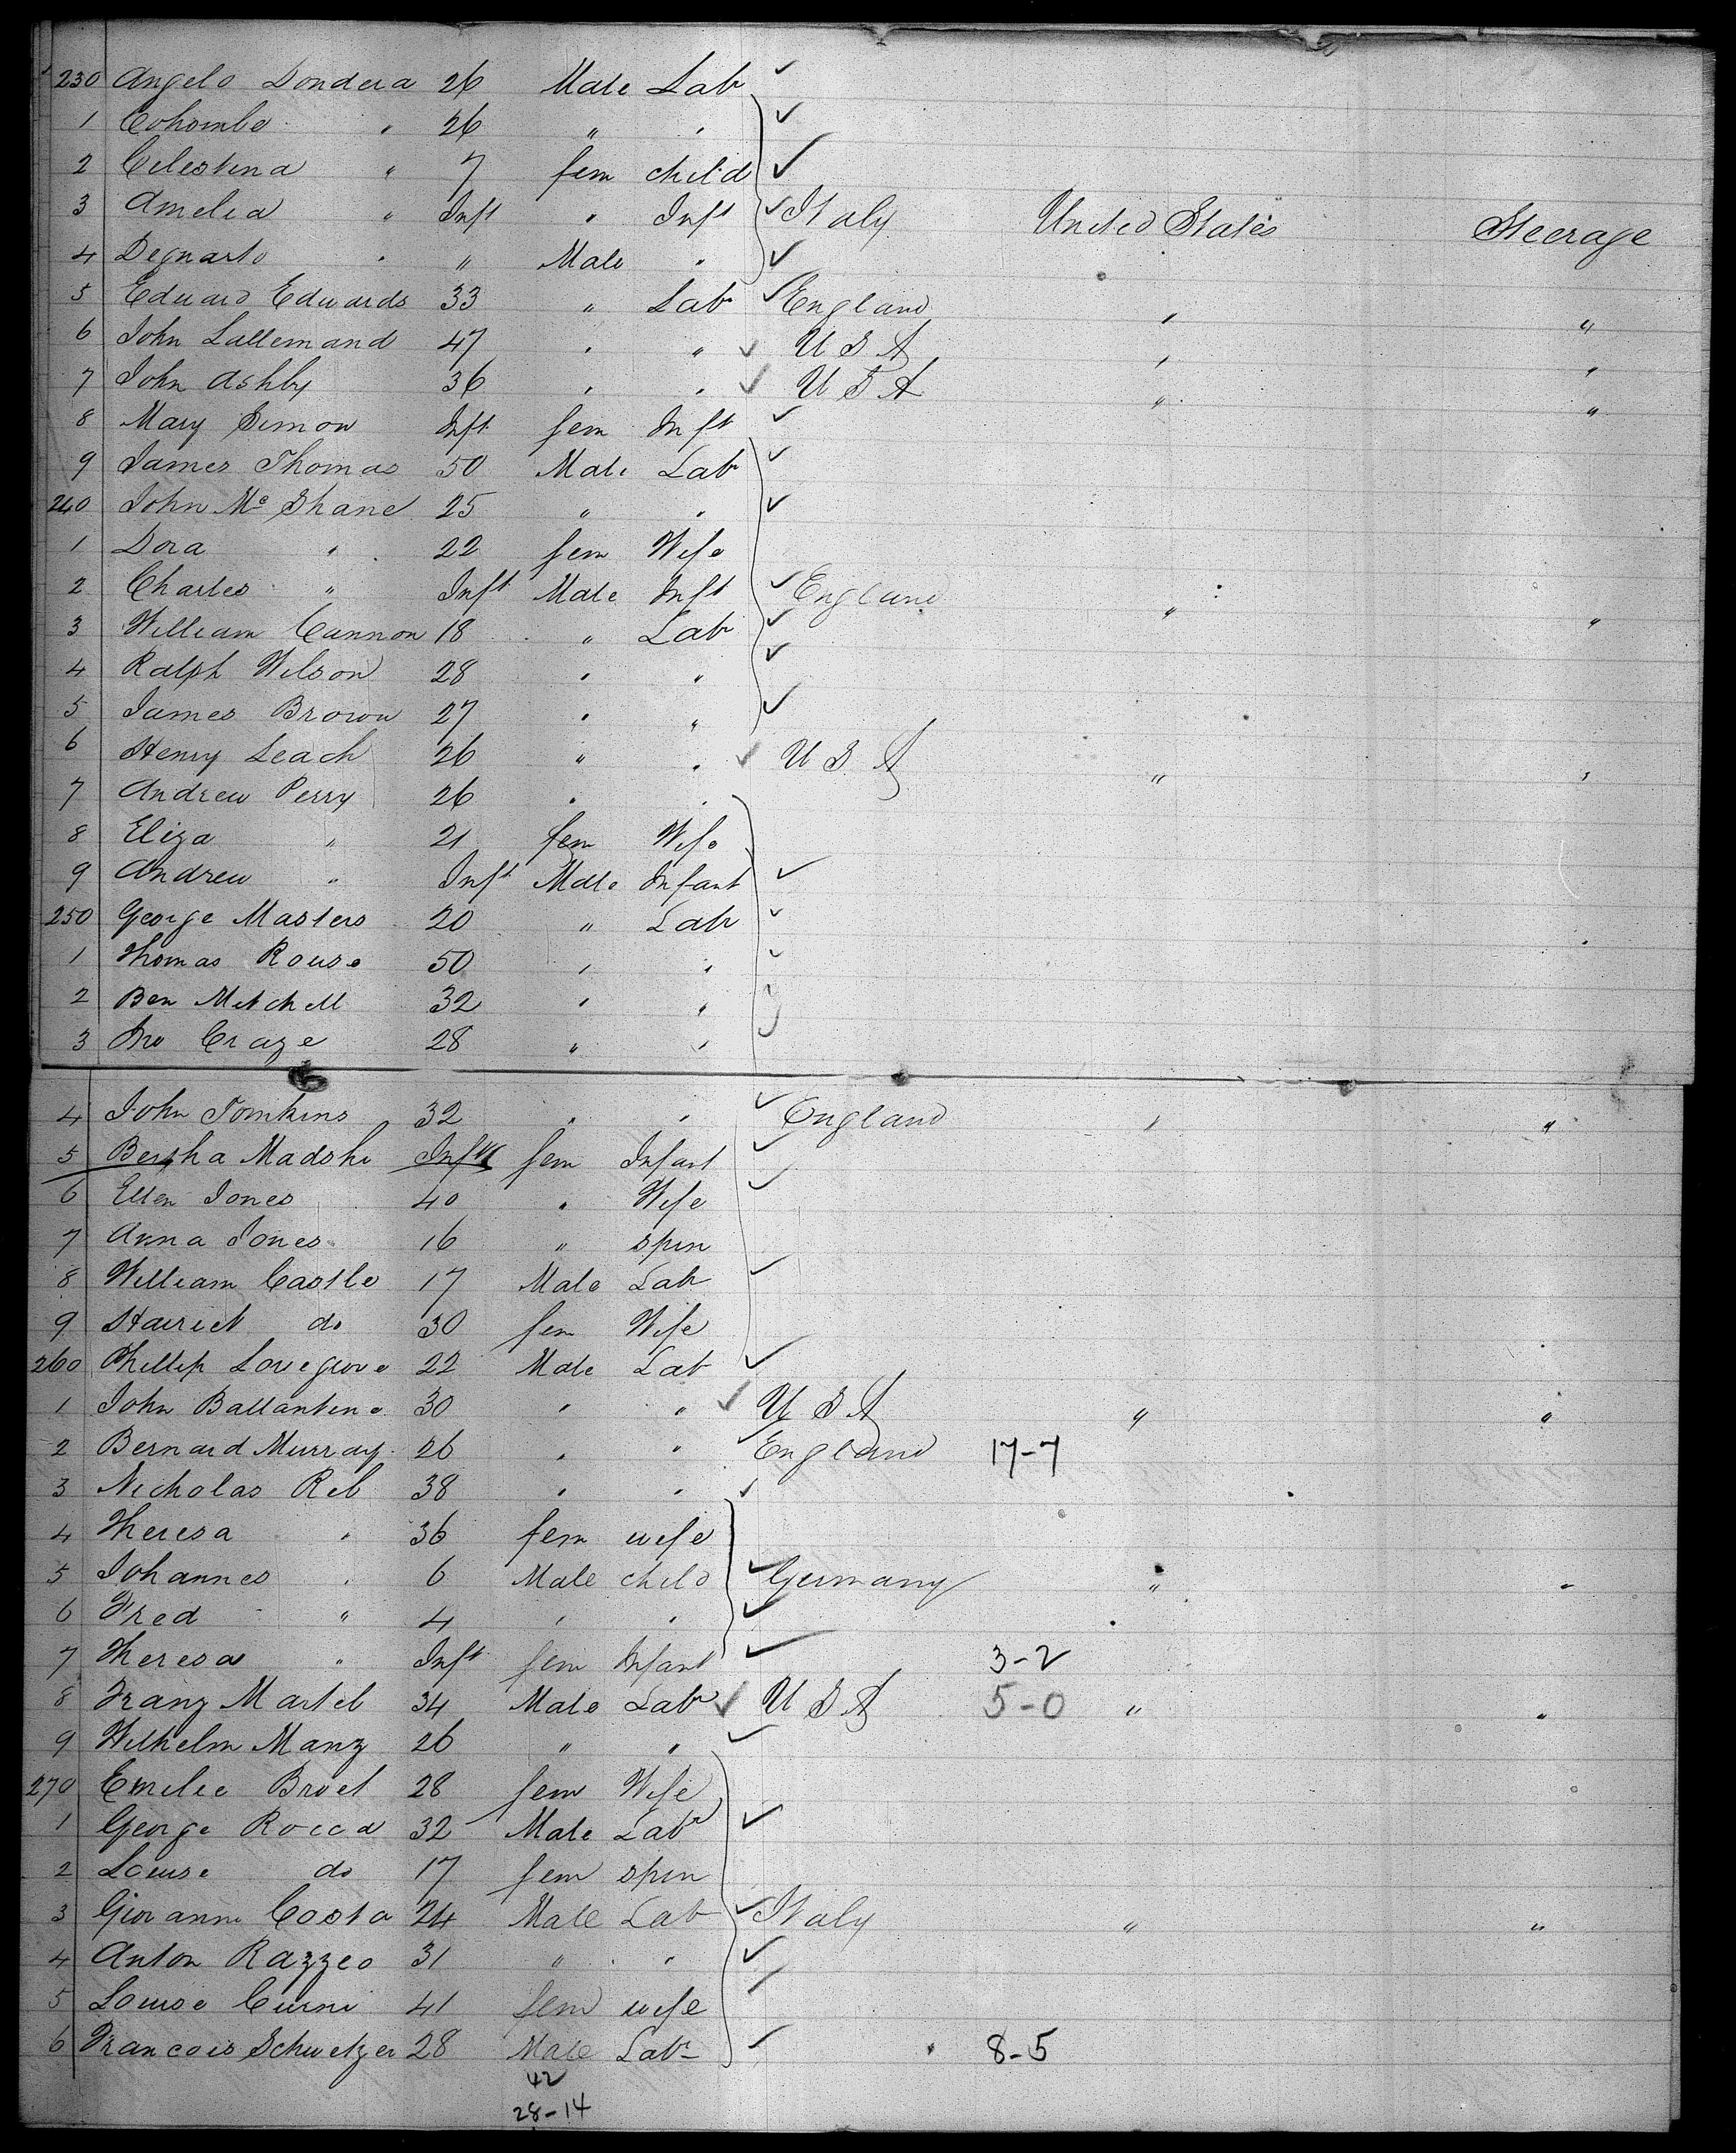 230 Angelo Dondera 26 Male Lab
1 Cohombo " 26 " "
2 Celestina " 7 fem child
3 Amelia " Inft " Inft Italy United States Steerage
4 Degnarto " " Male "
5 Edward Edwards 33 " Lab England " "
6 John Lallemand 47 " " U S A " "
7 John Ashby 36 " " U S A " "
8 Mary Simon Inft fem Inft
9 James Thomas 50 Male Lab
240 John Mc Shane 25 " "
1 Dora " 22 fem Wife
2 Charles " Inft Male Inft England " "
3 William Cannon 18 " Lab
4 Ralph Wilson 28 " "
5 James Brown 27 " "
6 Henry Leach 26 " " U S A " "
7 Andrew Perry 26 " "
8 Eliza " 21 fem Wife
9 Andrew " Inft Male Infant
250 George Masters 20 " Lab
1 Thomas Rouse 50 " "
2 Ben Mitchell 32 " "
3 Jno Craze 28 " "
4 John Tomkins 32 " " England " "
5 Bertha Madshi Inft fem Infant
6 Ellen Jones 40 " Wife
7 Anna Jones 16 " spin
8 William Castle 17 Male Lab
9 Harriet do 30 fem Wife
260 Phillip Lovegrove 22 Male Lab
1 John Ballantine 30 " " U S A " "
2 Bernard Murray 26 " " England 17-7
3 Nicholas Reb 38 " "
4 Theresa " 36 fem wife
5 Johannes " 6 Male child Germany " "
6 Fred " 4 " "
7 Theresa " Inft fem Infant 3-2
8 Franz Martel 34 Male Lab U S A 5-0 " "
9 Wilhelm Manz 26 " "
270 Emilie Broel 28 fem Wife
1 George Rocca 32 Male Lab
2 Louise do 17 fem spin
3 Giovanni Costa 24 Male Lab Italy " "
4 Anton Razzeo 31 " "
5 Louise Curni 41 fem wife
6 Francois Schwetzer 28 Male Lab 8-5
42
28-14